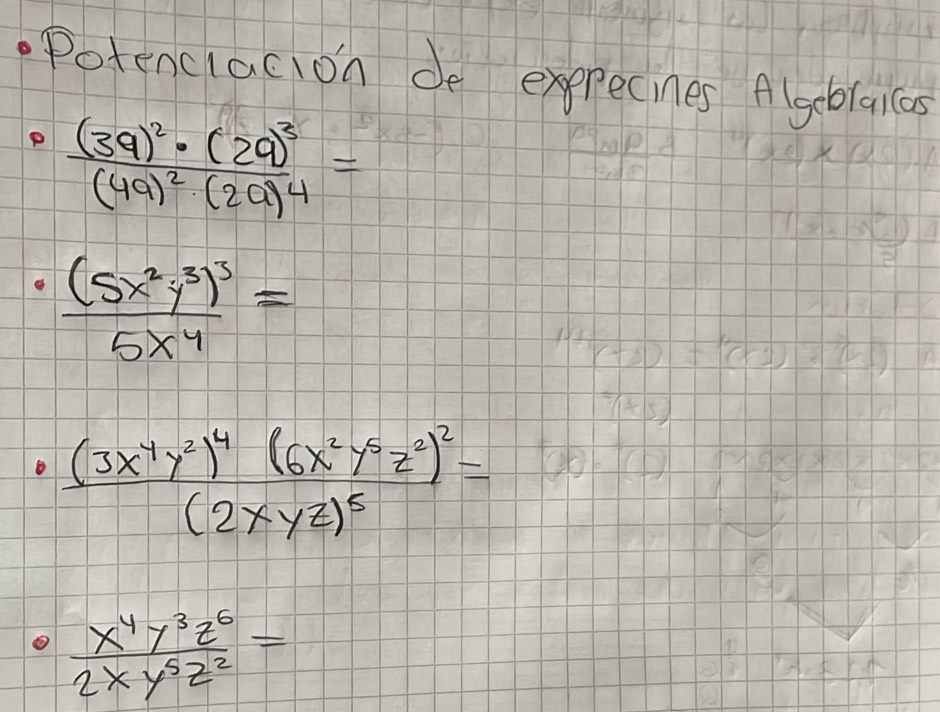 • Potenciación de exprecines Algebraicas
• (3a)² · (2a)³ =
(4a)² · (2a)4
• (5x²y³)³ =
5x⁴
• (3x⁴y²)⁴ (6x²y⁵z²)² =
(2xyz)⁵
• x⁴y³z⁶ =
2xy⁵z²